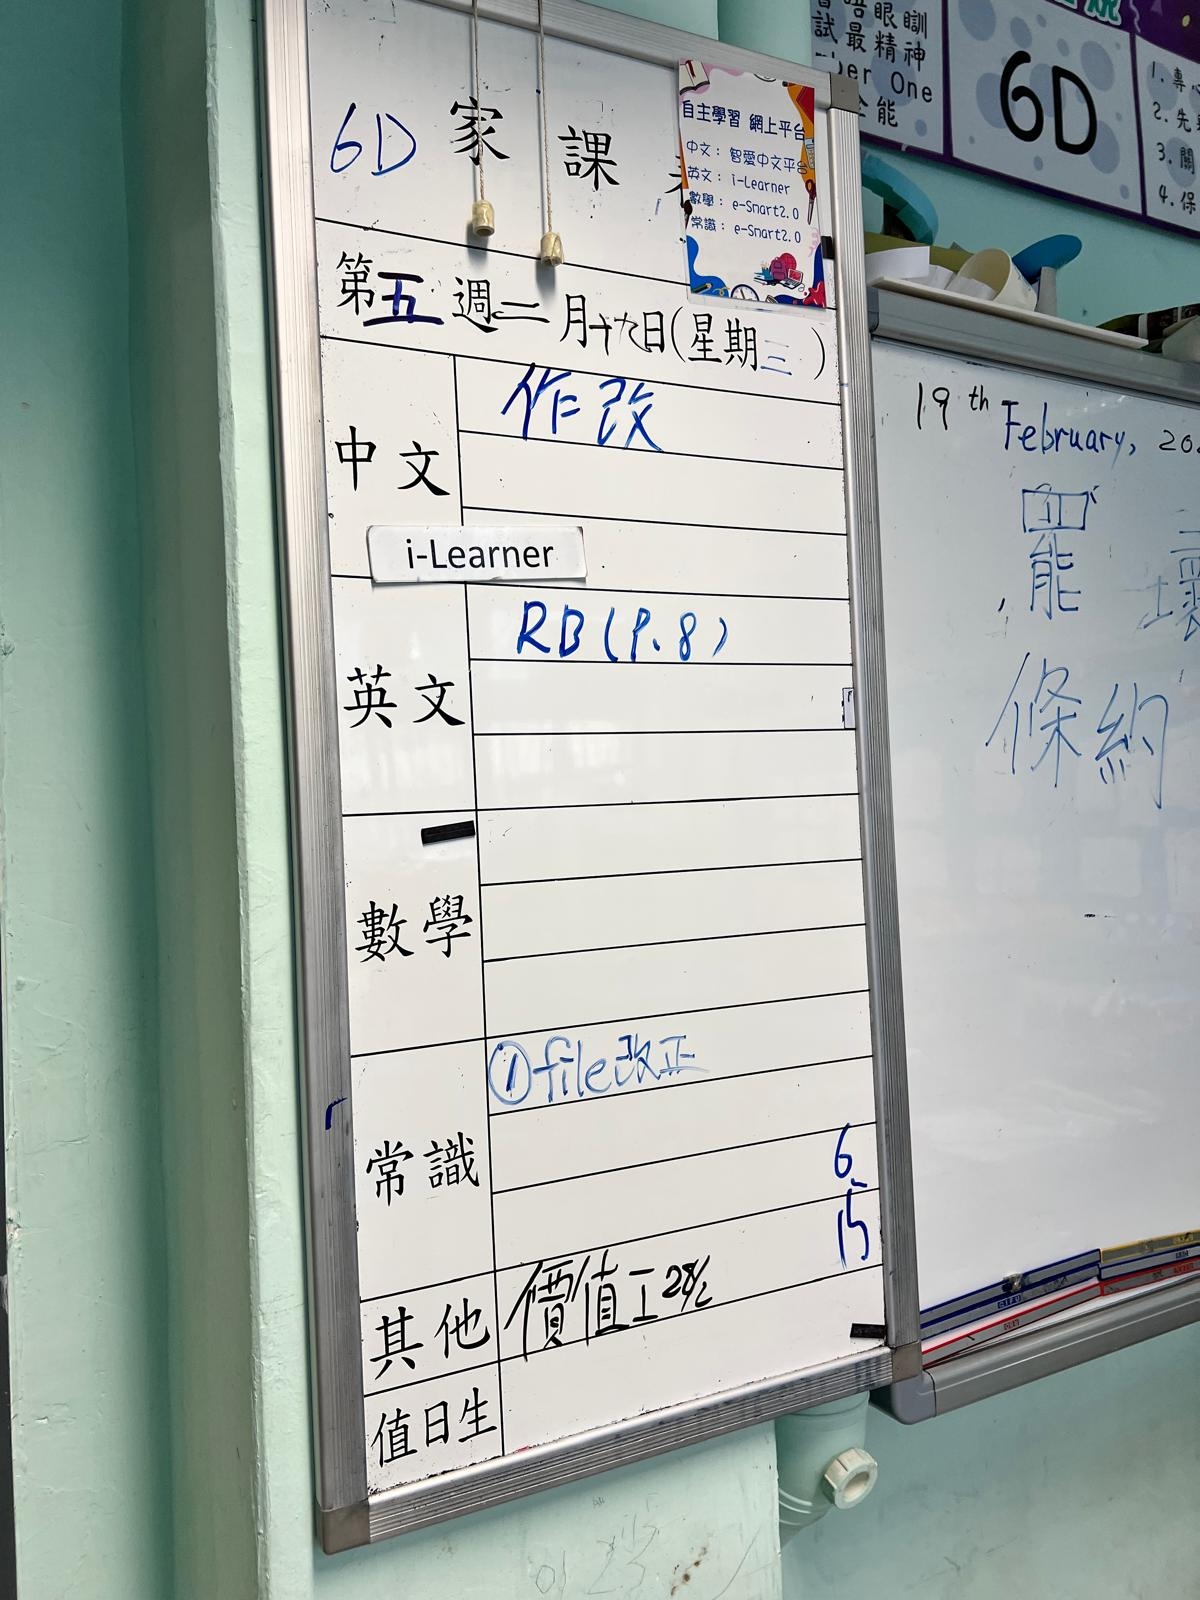 6D 家 課
自主學習 網上平台
中文： 智愛中文平台
英文： i-Learner
數學： e-Smart2.0
常識： e-Smart2.0
第五週二月十九日(星期三)
中文
作改
i-Learner
英文
RB(P.8)
數學
常識
①file改正
6
其他
價值工28/2
值日生
眼瞓
試最精神
One
全能
6D
1. 專心
2. 先
3. 關
4. 保
19th February, 202
罷
壞
條約